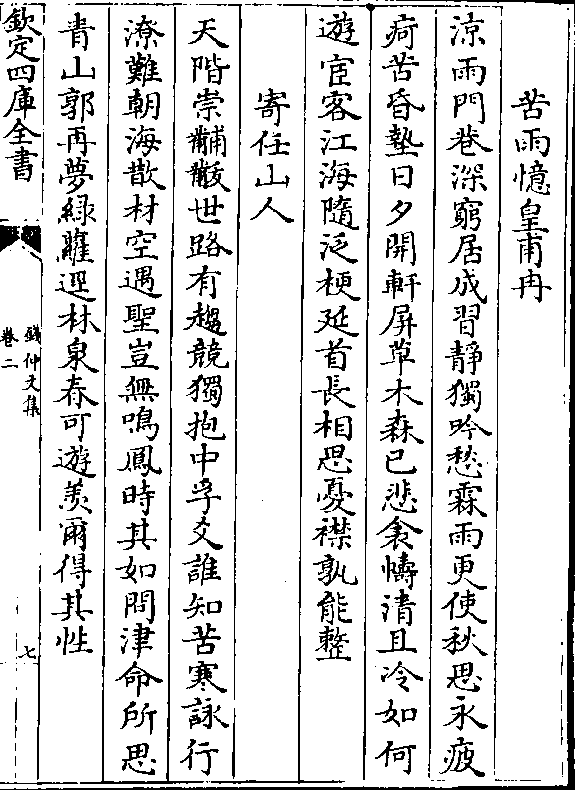 苦雨憶皇甫冉
涼雨門巷深窮居成習靜獨吟愁霖雨更使秋思永疲
疴苦昏墊日夕開軒屏草木森已悲衾幬清且冷如何
遊宦客江海隨泛梗延首長相思憂襟孰能整
寄任山人
天階崇黼黻世路有趨競獨抱中孚爻誰知苦寒詠行
潦難朝海散材空遇聖豈無鳴鳳時其如問津命所思
青山郭再夢綠蘿逕林泉春可遊羨爾得其性
欽定四庫全書
錢仲文集
卷二
七